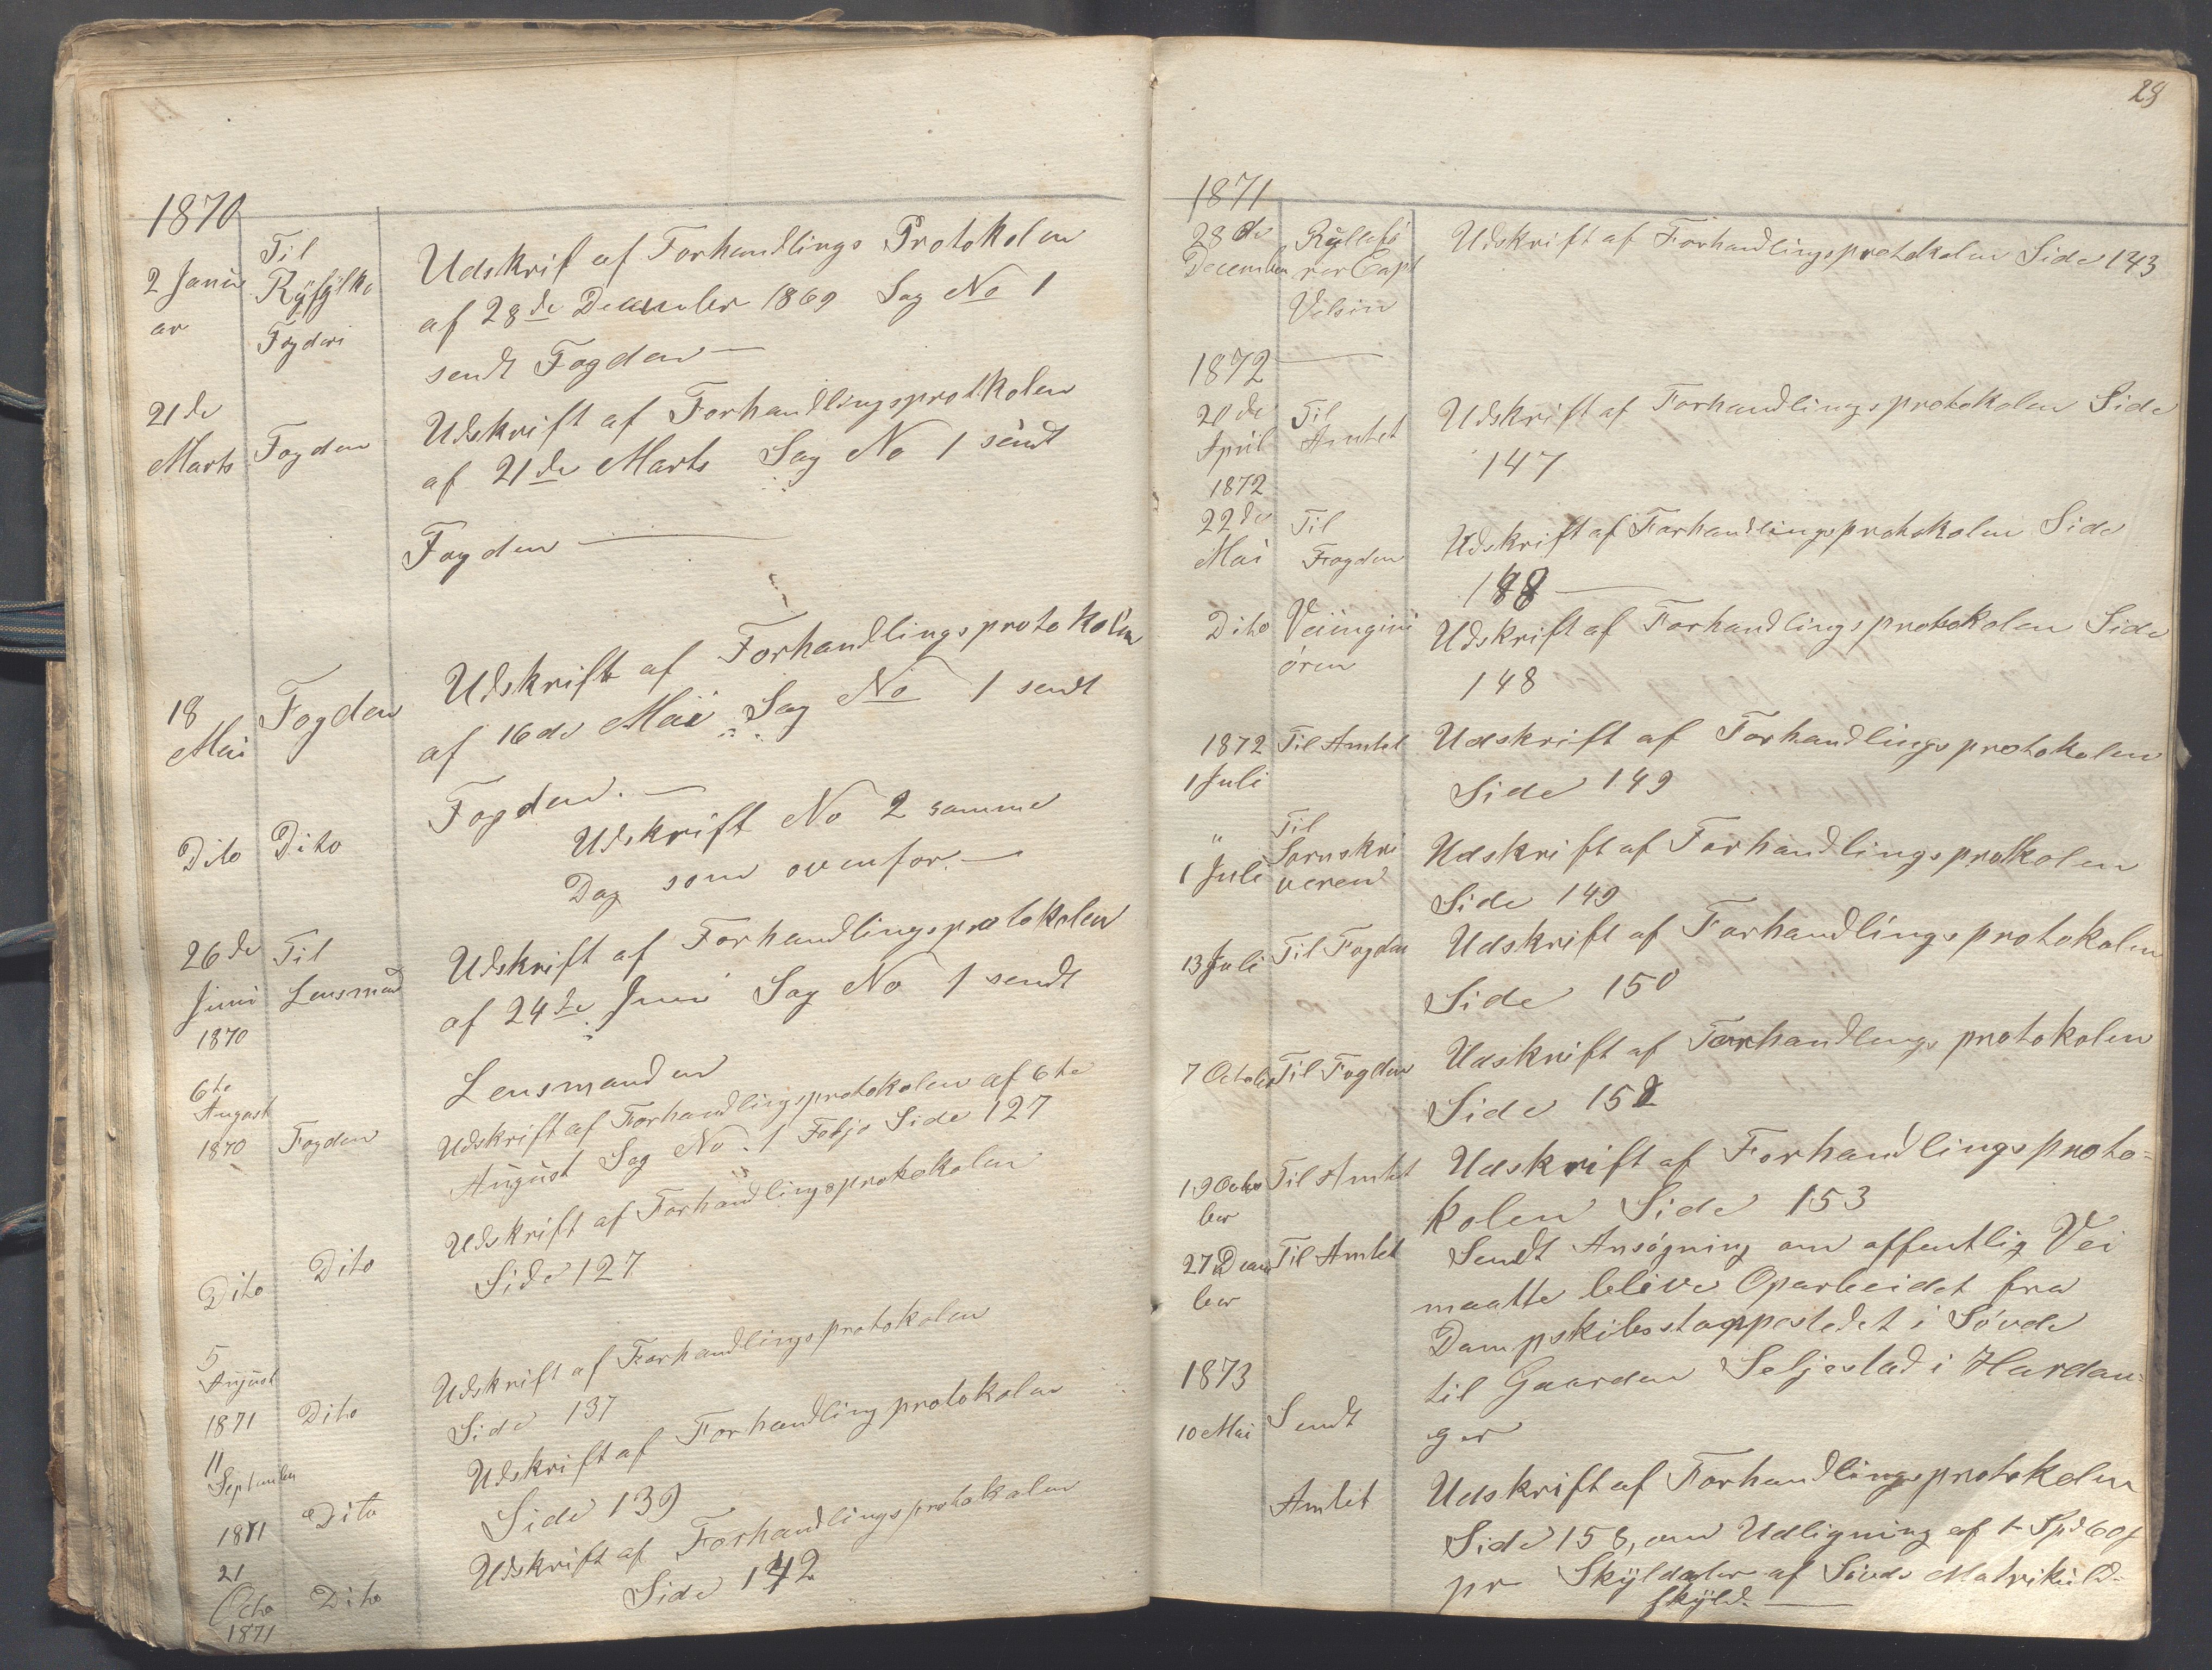 1870
2 Janu
ar
Til
Ryfylke
Fogderi
Udskrif af Forhandlings Protokolen
af 28de December 1869 Sag No 1
sendt Fogden
21de
Marts
Fogden
Udskrift af Forhandlingsprotkolen
af 21de Marts Sag No 1 sendt
Fogden
18
Mai
Fogden
Udskrift af Forhandlingsprotokolen
af 16de Mai Sag No 1 sendt
Fogden.
Dito
Dito
Udskrift No 2 samme
Dag som ovenfor.
26de
Juni
1870
Til
Lensmand
Udskrift af Forhandlingsprotokolen
af 24de Juni Sag No 1 sendt
Lensmanden
6te
August
1870
Fogden
Udskrift af Forhandlingsprotokolen af 6te
August Sag No. 1 Side 127
Dito
Dito
Udskrift af Forhandlingsprotokolen
Side 127
5
August
1871
Dito
Udskrift af Forhandlingsprotokolen
Side 137
11
September
1871
Dito
Udskrift af Forhandlingprotokolen
Side 139
21
Octo
1871
Dito
Udskrift af Forhandlingsprotokolen
Side 142
29
1871
28de
December
Rullefö
rer Capt
Udskrift af Forhandlingsprotokolen Side 143
1872
20de
April
1872
Til
Amtet
Udskrift af Forhandlingsprotokolen Side
147
22de
Mai
Til
Fogden
Udskrift af Forhandlingsprotokolen Side
148
Dito
Veiingini
ören
Udskrift af Forhandlingsprotokolen Side
148
1872
1 Juli
Til Amtet
Udskrift af Forhandlingsprotokolen
Side 149
"
1 Juli
Til
Sornskri
veren
Udskrift af Forhandlingsprotkolen
Side 149
13 Juli
Til Fogden
Udskrift af Forhandlingsprotokolen
Side 150
7 October
Til Fogden
Udskrift af Forhandlings protokolen
Side 152
19 Octo
ber
Til Amtet
Udskrift af Forhandlingsproto=
kolen Side 153
27 Decem
ber
Til Amtet
Sendt Ansögning om offentlig Vei
maatte blive Oparbeidet fra
Dampskibsstoppestedet i Sövde
til Gaarden Seljestad i Hardan=
ger
1873
10 Mai
Sendt
Amtet
Udskrift af Forhandlingsprotokolen
Side 158, om Udligning af 1 Spd 60
pr Skylddaler af Sövde Matrikuld=
skyld.